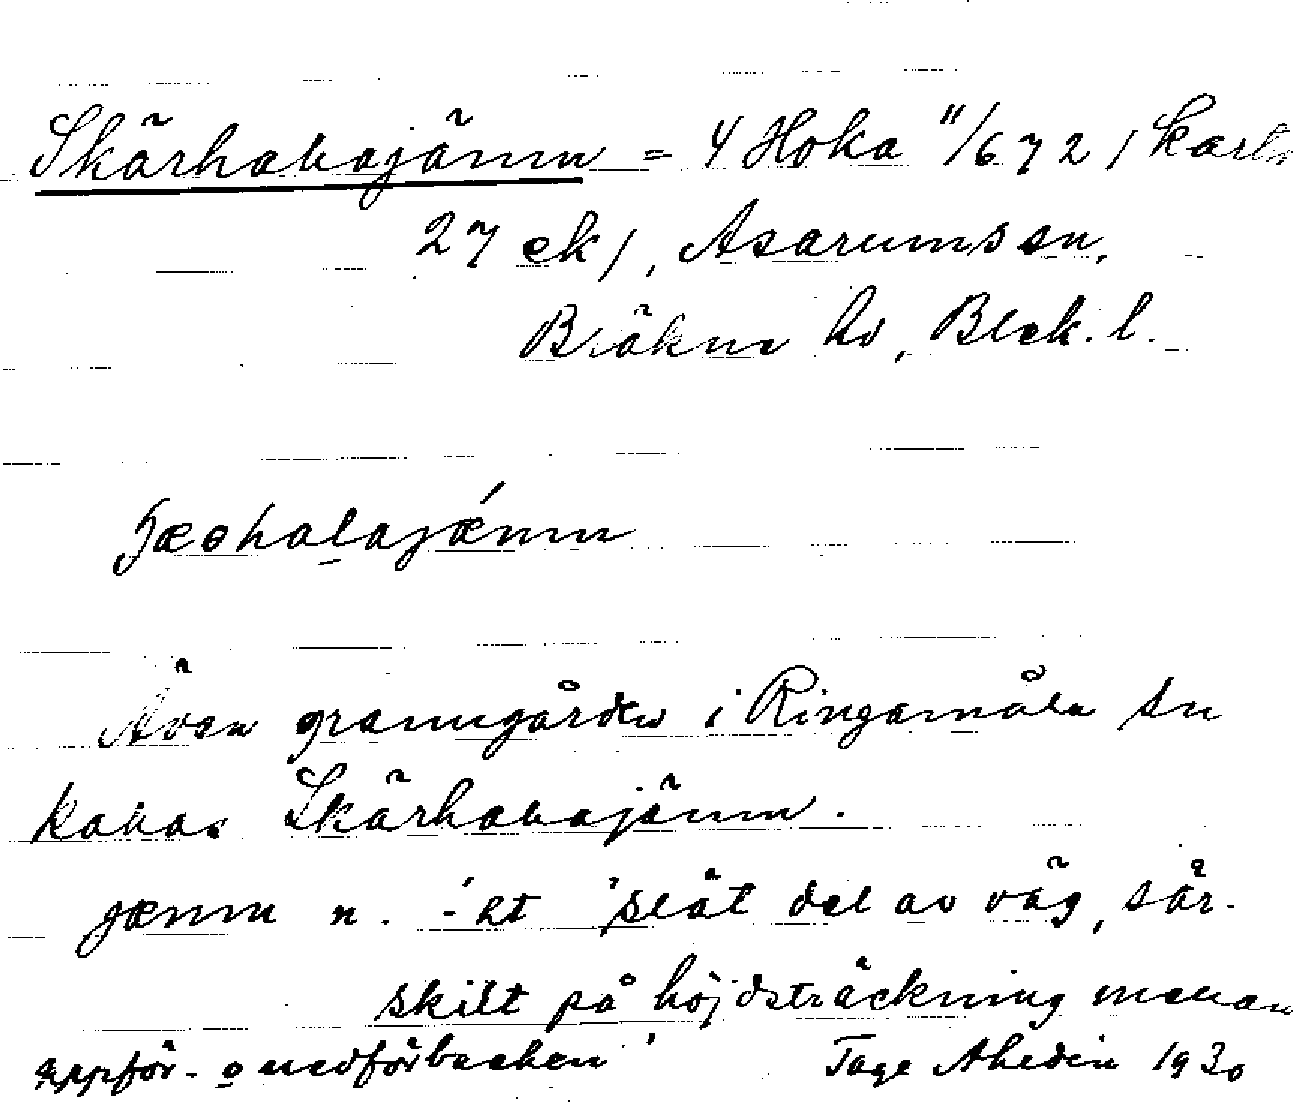 Skärhalajämn = 4 Hoka 11/6 72 / Karls
27 ek /, Asarums sn,
Bräkne hd, Blek. l.
ʃæɵhal̠ajǽmn
Även granngården i Ringamåla sn
kallas Skärhalajämn.
jæmn n. -'et 'slät del av väg, sär-
skilt på höjdsträckning mellan
uppför- o nedförbacken' Tage Ahedin 1930